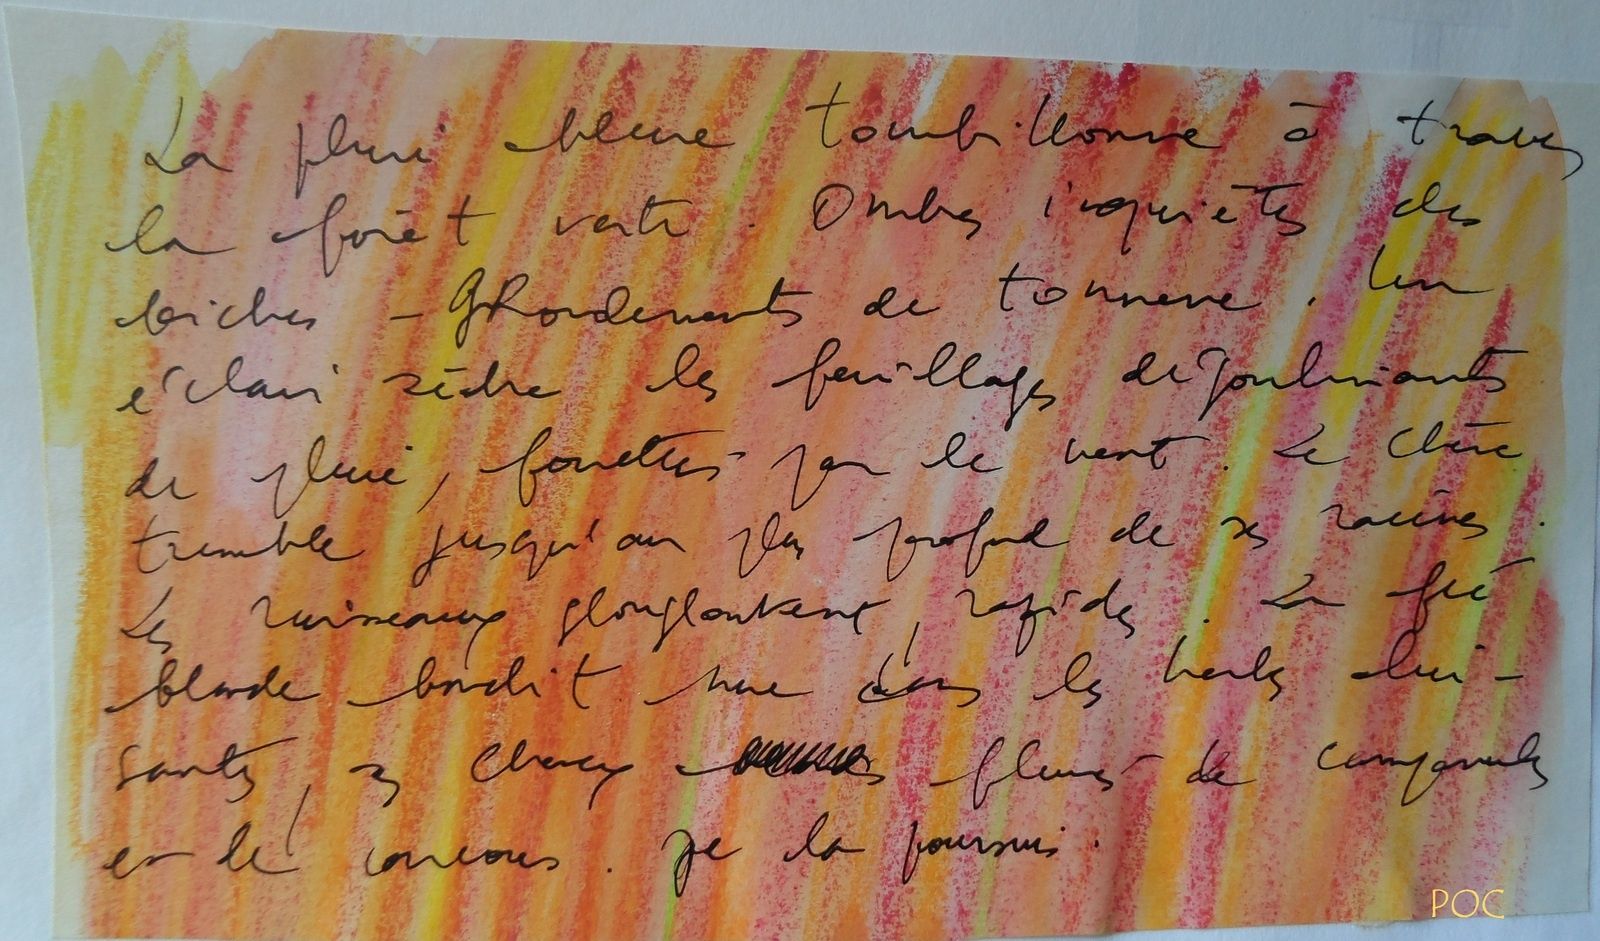 La pluie bleue tourbillonne à travers
la forêt verte. Ombres inquiètes des
biches – Grondements de tonnerre. Un
éclair zèbre les feuillages dégoulinants
de pluie, fouettés par le vent. Le chêne
tremble jusqu'au plus profond de ses racines.
Les ruisseaux glougloutent, rapides. La fée
blonde bondit nue dans les herbes lui-
santes, ses cheveux fleuris de campanules
et de
. Je la poursuis.
POC